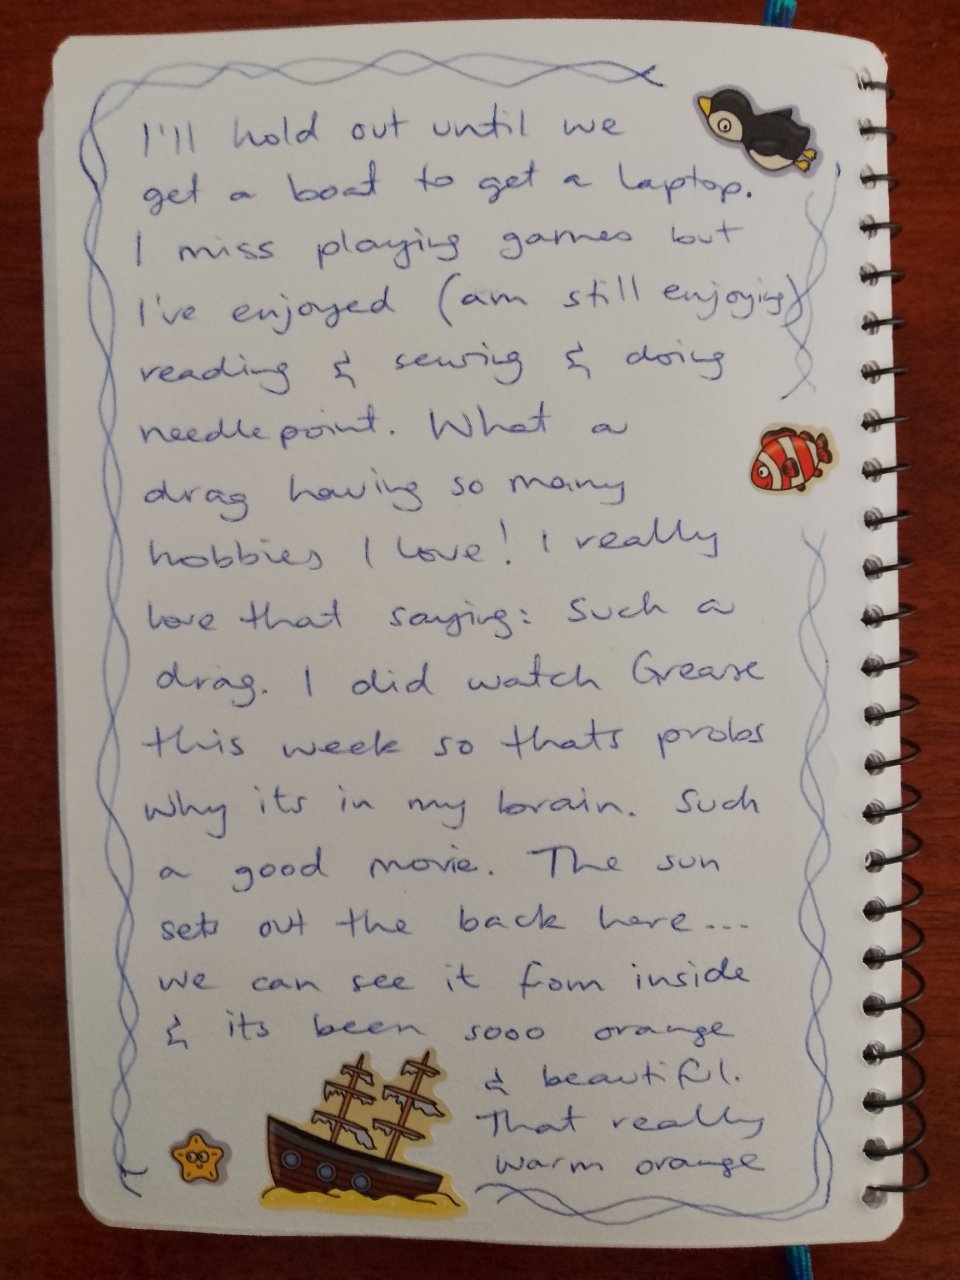 I'll hold out until we
get a boat to get a laptop.
I miss playing games but
I've enjoyed (am still enjoying)
reading & sewing & doing
needlepoint. What a
drag having so many
hobbies I love! I really
love that saying: Such a
drag. I did watch Grease
this week so thats probs
why its in my brain. Such
a good movie. The sun
sets out the back here...
we can see it fom inside
& its been sooo orange
& beautiful.
That really
warm orange